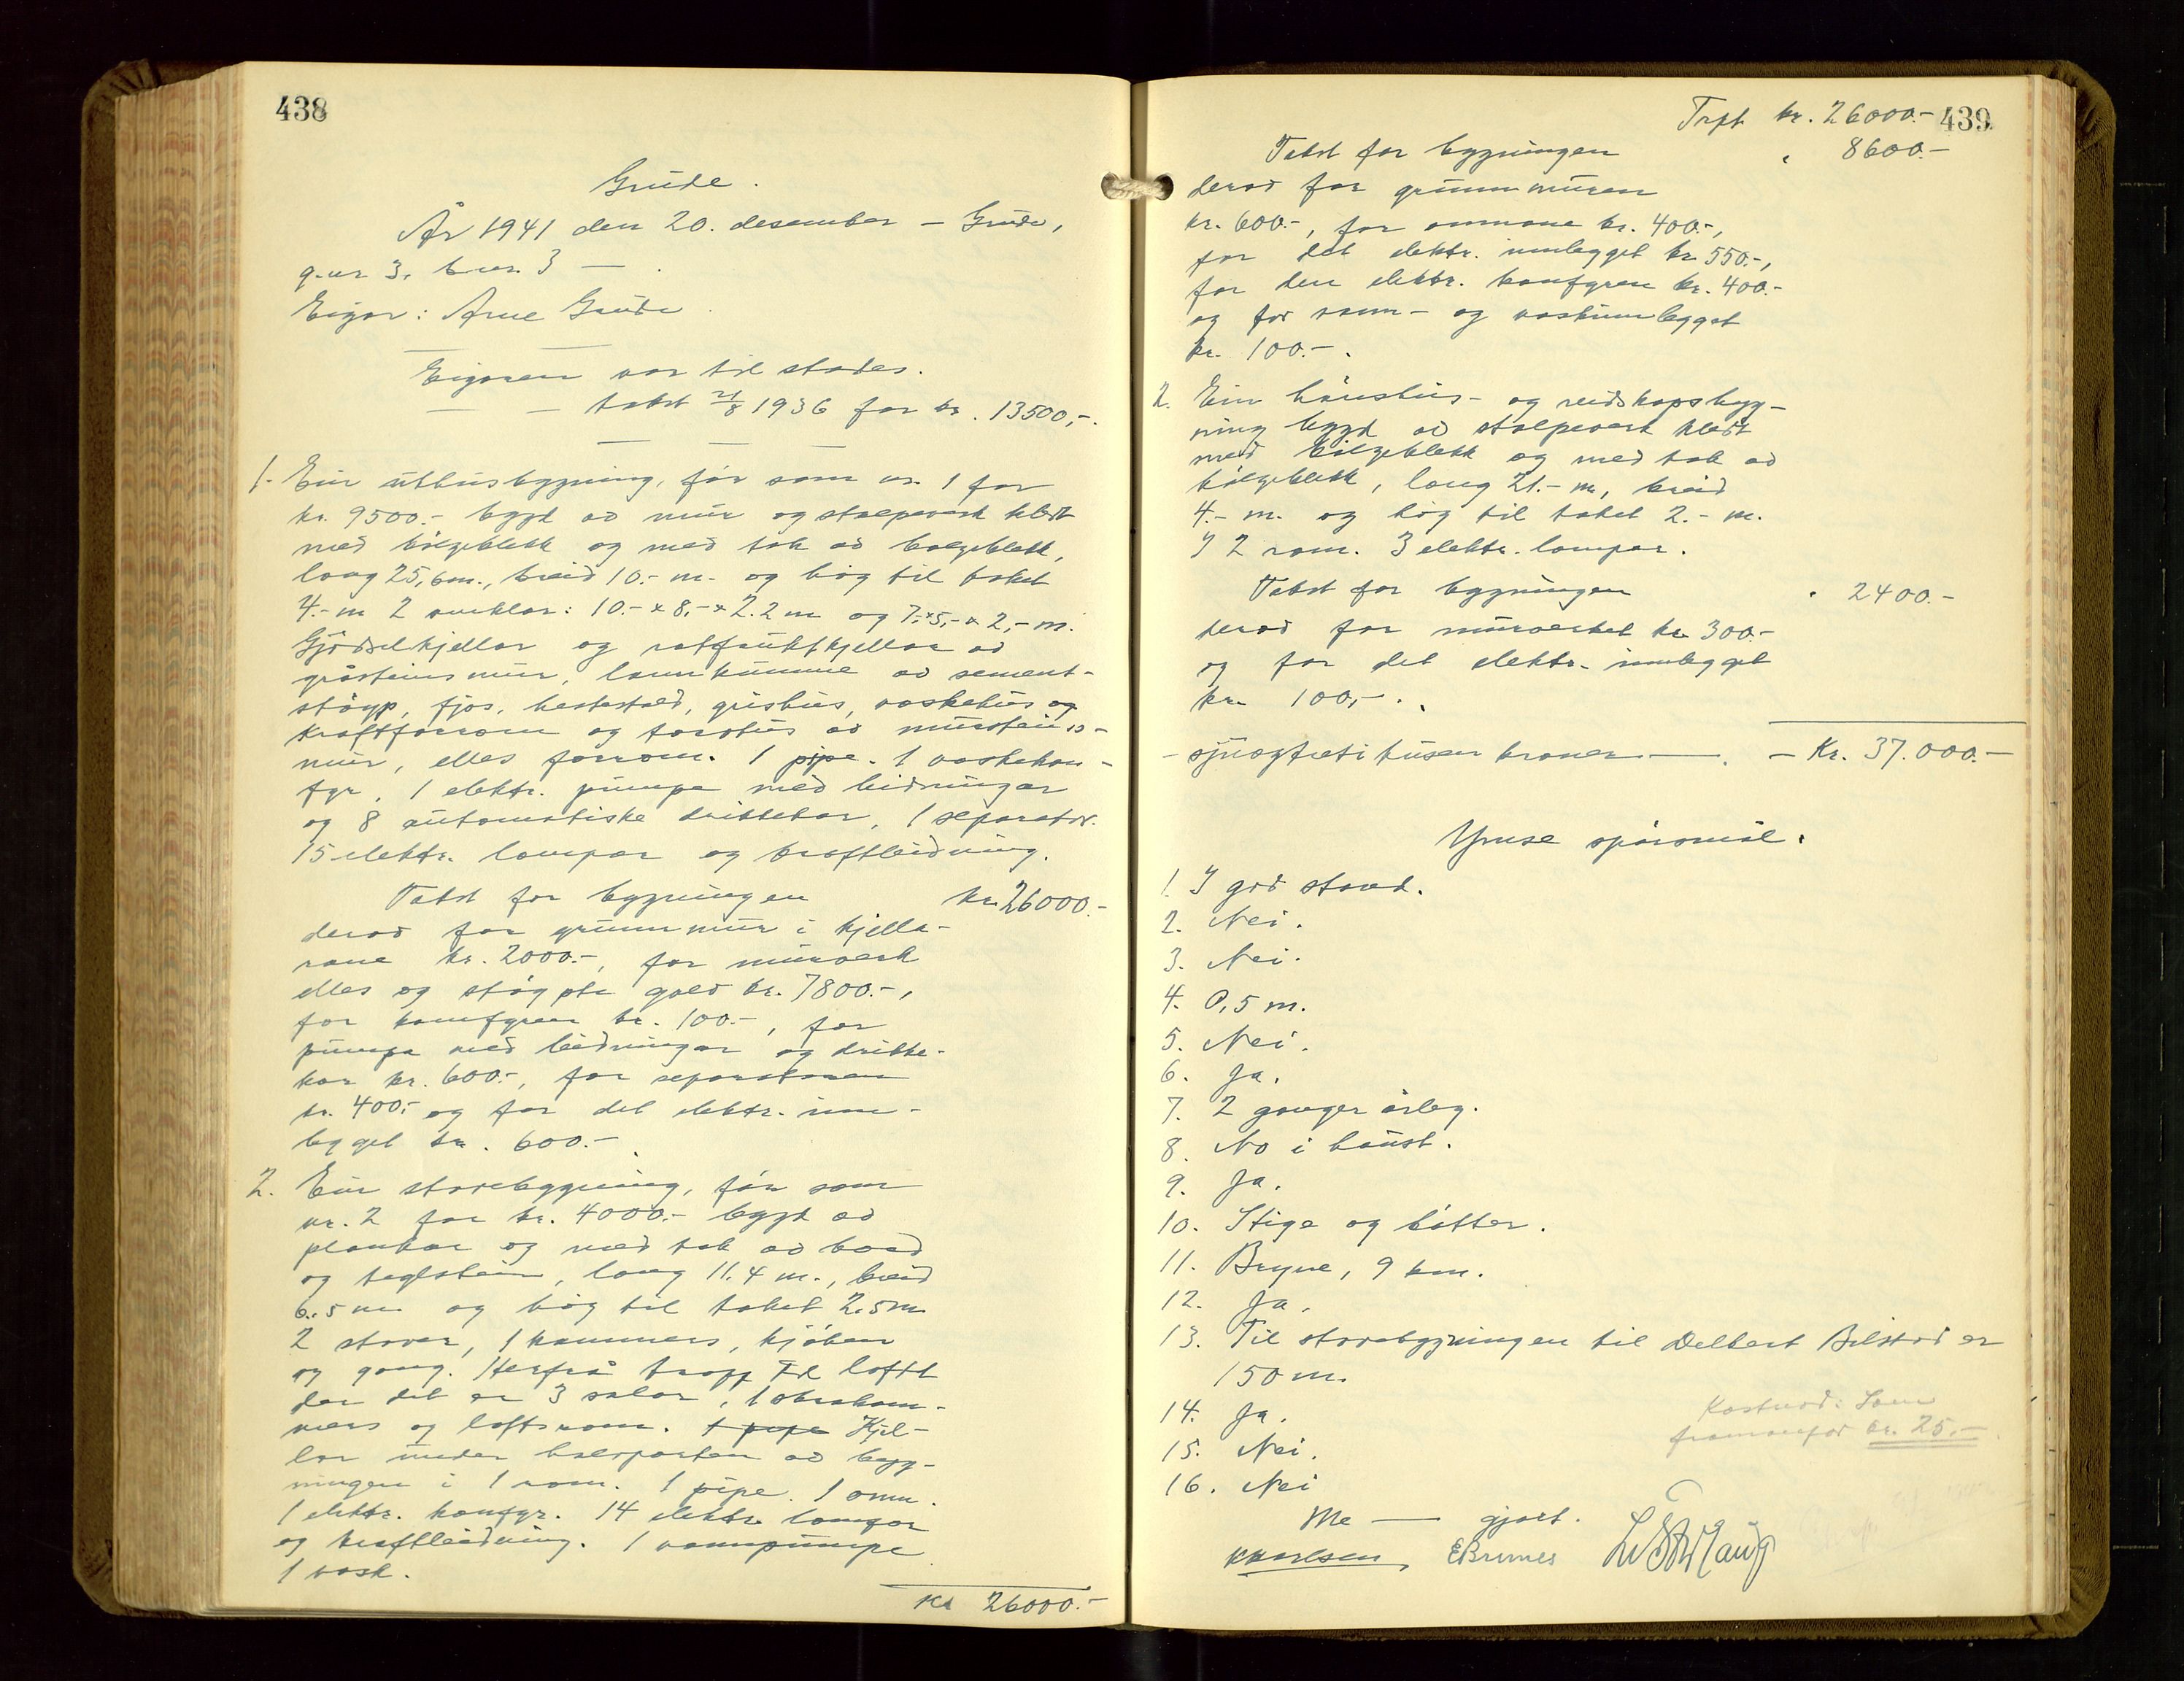 438
Grude.
År 1941 den 20. desember – Grude,
g.nr 3. b.nr. 3 — .
Eigar: Arne Grude
Eigaren var til stades.
— — takst 21/8 1936 for kr. 13500,-.
1. Ein uthusbygning, før som nr. 1 for
kr. 9500.- bygd av mur og stolpeverk kledt
med bølgeblekk og med tak av bølgeblekk,
lang 25,6 m., breid 10.- m. og høg til taket
4.- m 2 vinklar: 10.- x 8,- x 2.2 m og 7,- x 5,- x 2,- m.
Gjødselkjellar og rotfruktkjellar av
gråsteinsmur, landkumme av sement-
støyp, fjøs, hestestald, grishus, vaskehus og
kraftforrom og torvhus av mursteins-
mur, elles forrom. 1 pipe. 1 vaskekom-
fyr. 1 elektr. pumpe med leidningar
og 8 automatiske drikkekar, 1 separator.
15 elektr. lampor og kraftleidning.
Takst for bygningen kr. 26000.-
derav for grunnmur i kjella-
rane kr. 2000.-, for murverk
elles og støypte golv kr. 7800.-,
for komfyren kr. 100.-, for
pumpa med leidningar og drikke-
kar kr. 600.-, for separatoren
kr. 400,- og for det elektr. inn-
legget kr. 600.- .
2. Ein stovebygning, før som
nr. 2 for kr. 4000.- bygd av
plankar og med tak av bord
og teglstein, lang 11.4 m., breid
6.5 m og høg til taket 2.5 m
2 stover, 1 kammers, kjøken
og gang. Herfrå trapp til loftt
der det er 3 salar, 1 kvekam-
mers og loftsrom. 1 pipe Kjel-
lar under halvparten av byg-
ningen i 1 rom. 1 pipe. 1 omn.
1 elektr. komfyr. 14 elektr. lampor
og kraftleidning. 1 vannpumpe
1 vask.
Kr 26000.-
439
Trpt kr. 26000.-
Takst for bygningen " 8600.-
derav for grunnmuren
kr. 600.-, for omnane kr. 400.-,
for det elektr. innlegget kr. 550.-,
for den elektr. komfyren kr. 400.-
og for vann- og vaskinnlegget
kr. 100.- .
2. Ein hønshus- og reidskapsbyg-
ning bygd av stolpeverk kledt
med bølgeblekk og med tak av
bølgeblekk, lang 21.- m, breid
4.- m. og høg til taket 2.- m.
I 2 rom. 3 elektr. lampor.
Takst for bygningen " 2400.-
derav for murverket kr. 300.-
og for det elektr. innlegget
kr. 100,- .
- sjuogtreti tusen kroner — . – Kr. 37.000.-
Ymse spørsmål.
1. I god stand.
2. Nei.
3. Nei.
4. 0,5 m.
5. Nei.
6. Ja.
7. 2 ganger årleg.
8. No i haust.
9. Ja.
10. Stige og bøtter.
11. Bryne, 9 km.
12. Ja.
13. Til stovebygningen til Delbert Bilstad er
150 m.
14. Ja.
15. Nei.
16. Nei
Kostnad: Som
framanfor kr. 25.-
Me — gjort.
KKarlsen, EBrunes